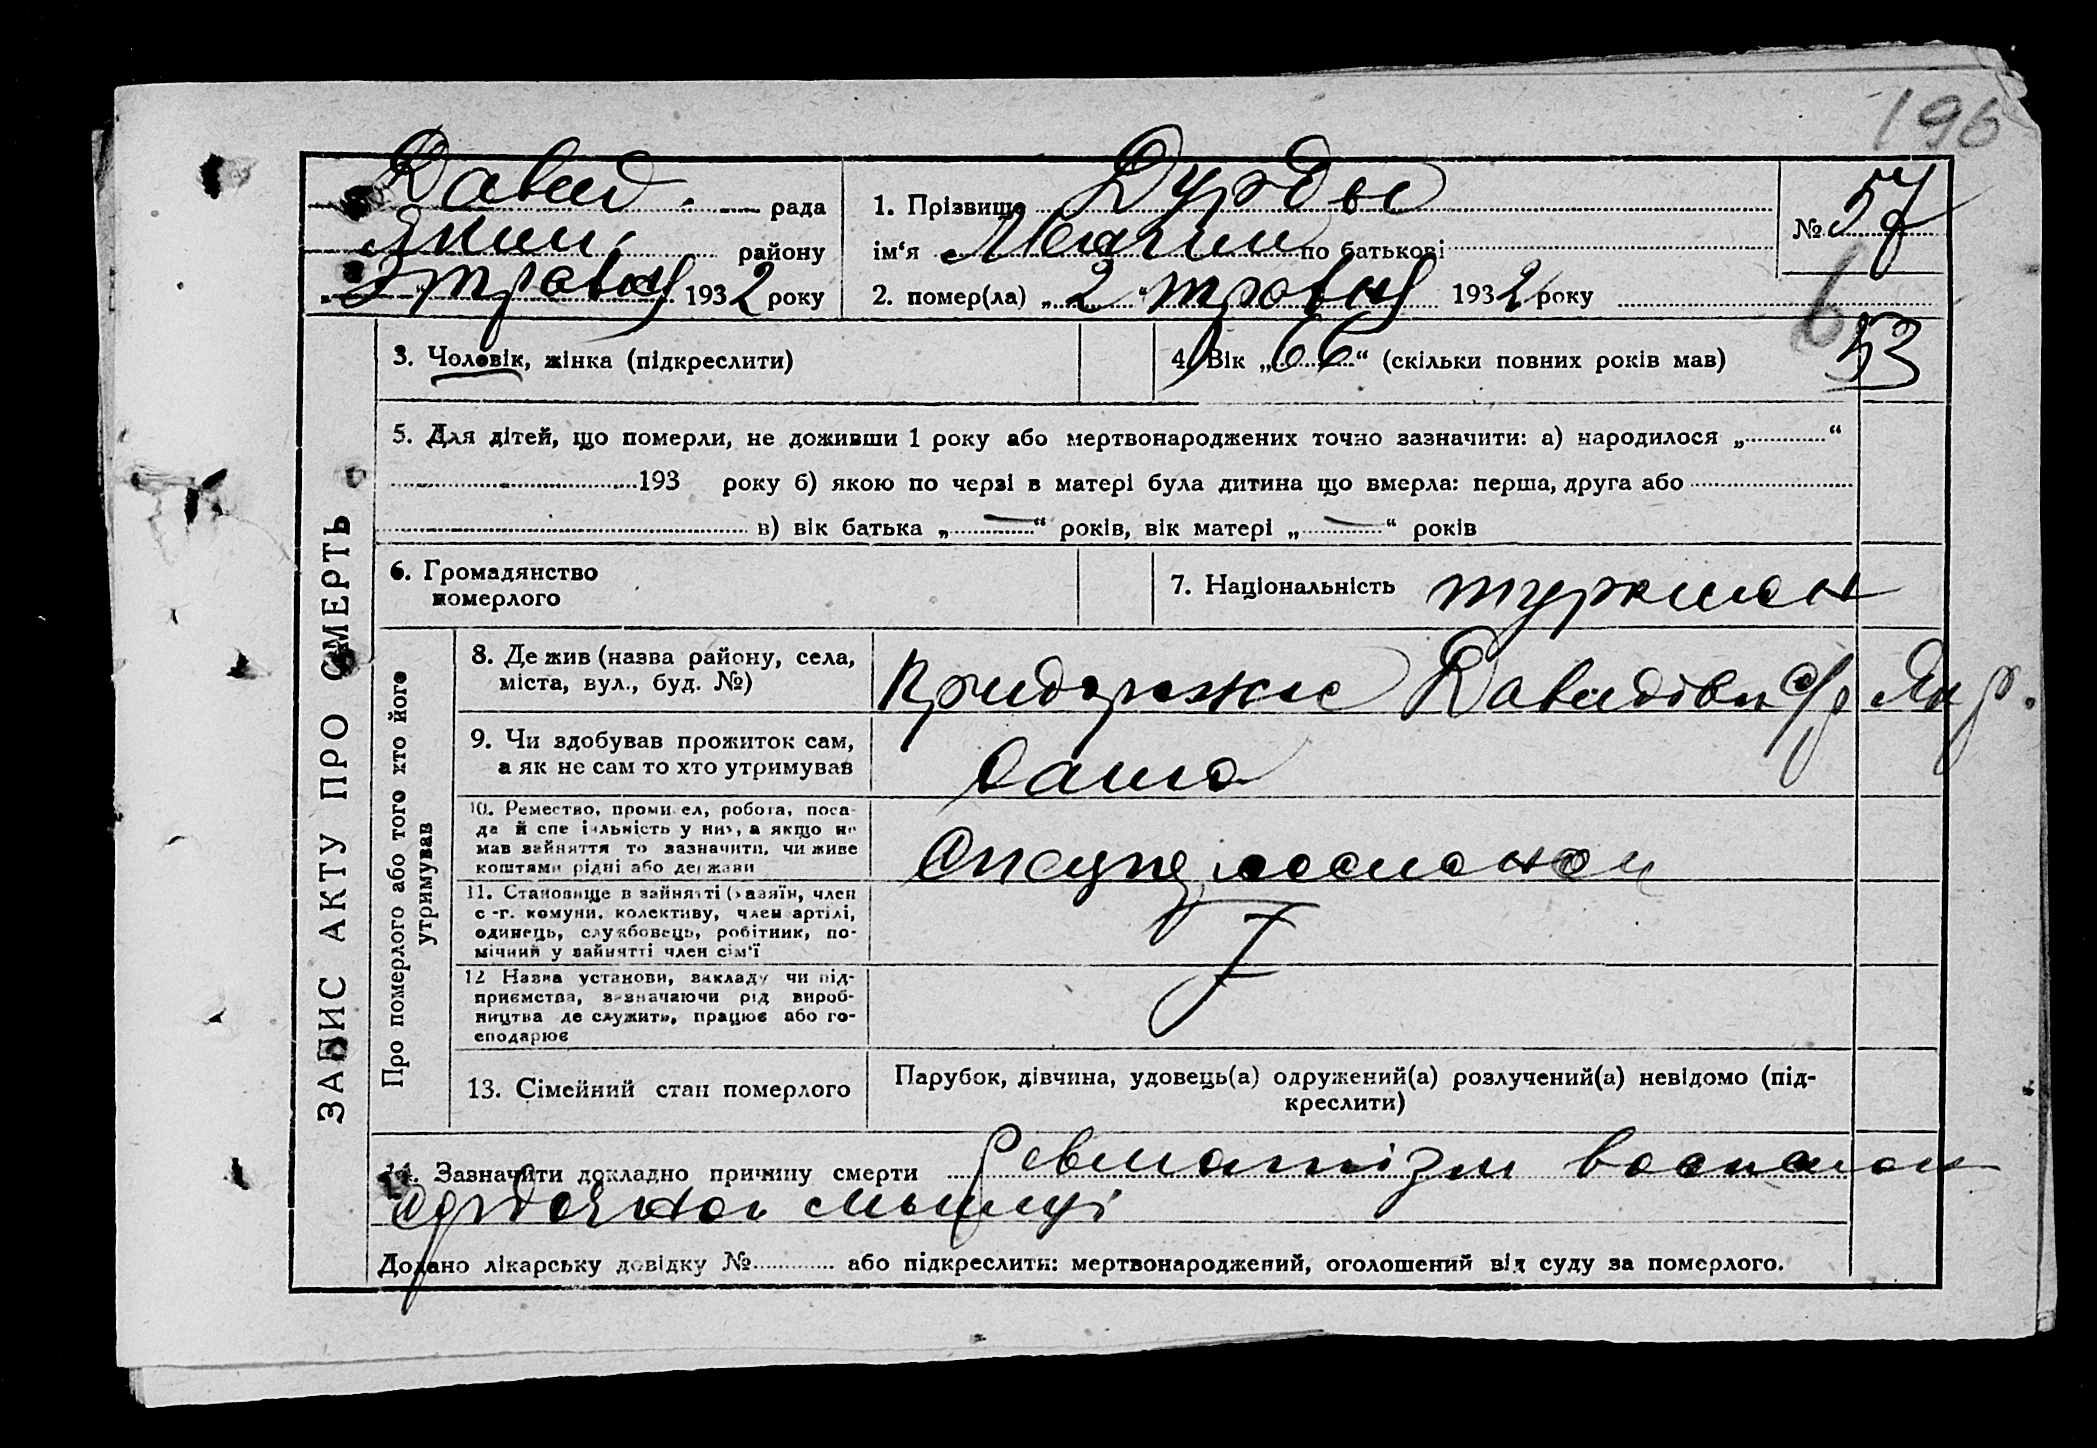 196
Давид. рада
Яким. району
2 травня 1932 року
1. Прізвище Дурды
ім‘я по батькові
2. помер(ла) „2“ травня 1932 року
№ 57
6
53
ЗАПИС АКТУ ПРО СМЕРТЬ
3. Чоловік, жінка (підкреслити)
4. Вік „66“ (скільки повних років мав)
5. Для дітей, що померли, не доживши 1 року або мертвонароджених точно зазначити: а) народилося „ “
193 року б) якою по черзі в матері була дитина що вмерла: перша, друга або
в) вік батька „—“ років, вік матері „—“ років
6. Громадянство
померлого
7. Національність туркман
Про померлого або того хто його
утримував
8. Де жив (назва району, села,
міста, вул., буд. №)
Придорожне Давидівк с/р Як р.
9. Чи здобував прожиток сам,
а як не сам то хто утримував
само
10. Ремество, промисел, робота, поса-
да й спеціяльність у них, а якщо не
мав зайняття то зазначити, чи живе
коштами рідні або держави
11. Становище в зайнятті (хазяїн, член
с.-г. комуни, колективу, член артілі,
одинець, службовець, робітник, по-
мічний у зайнятті член сім‘ї
12 Назва установи, закладу чи під-
приємства, зазначаючи рід вироб-
ництва де служить, працює або го-
сподарює
13. Сімейний стан померлого
Парубок, дівчина, удовець(а) одружений(а) розлучений(а) невідомо (під-
креслити)
14. Зазначити докладно причину смерти Ревматізм
мышці
Додано лікарську довідку № або підкреслити: мертвонароджений, оголошений від суду за померлого.